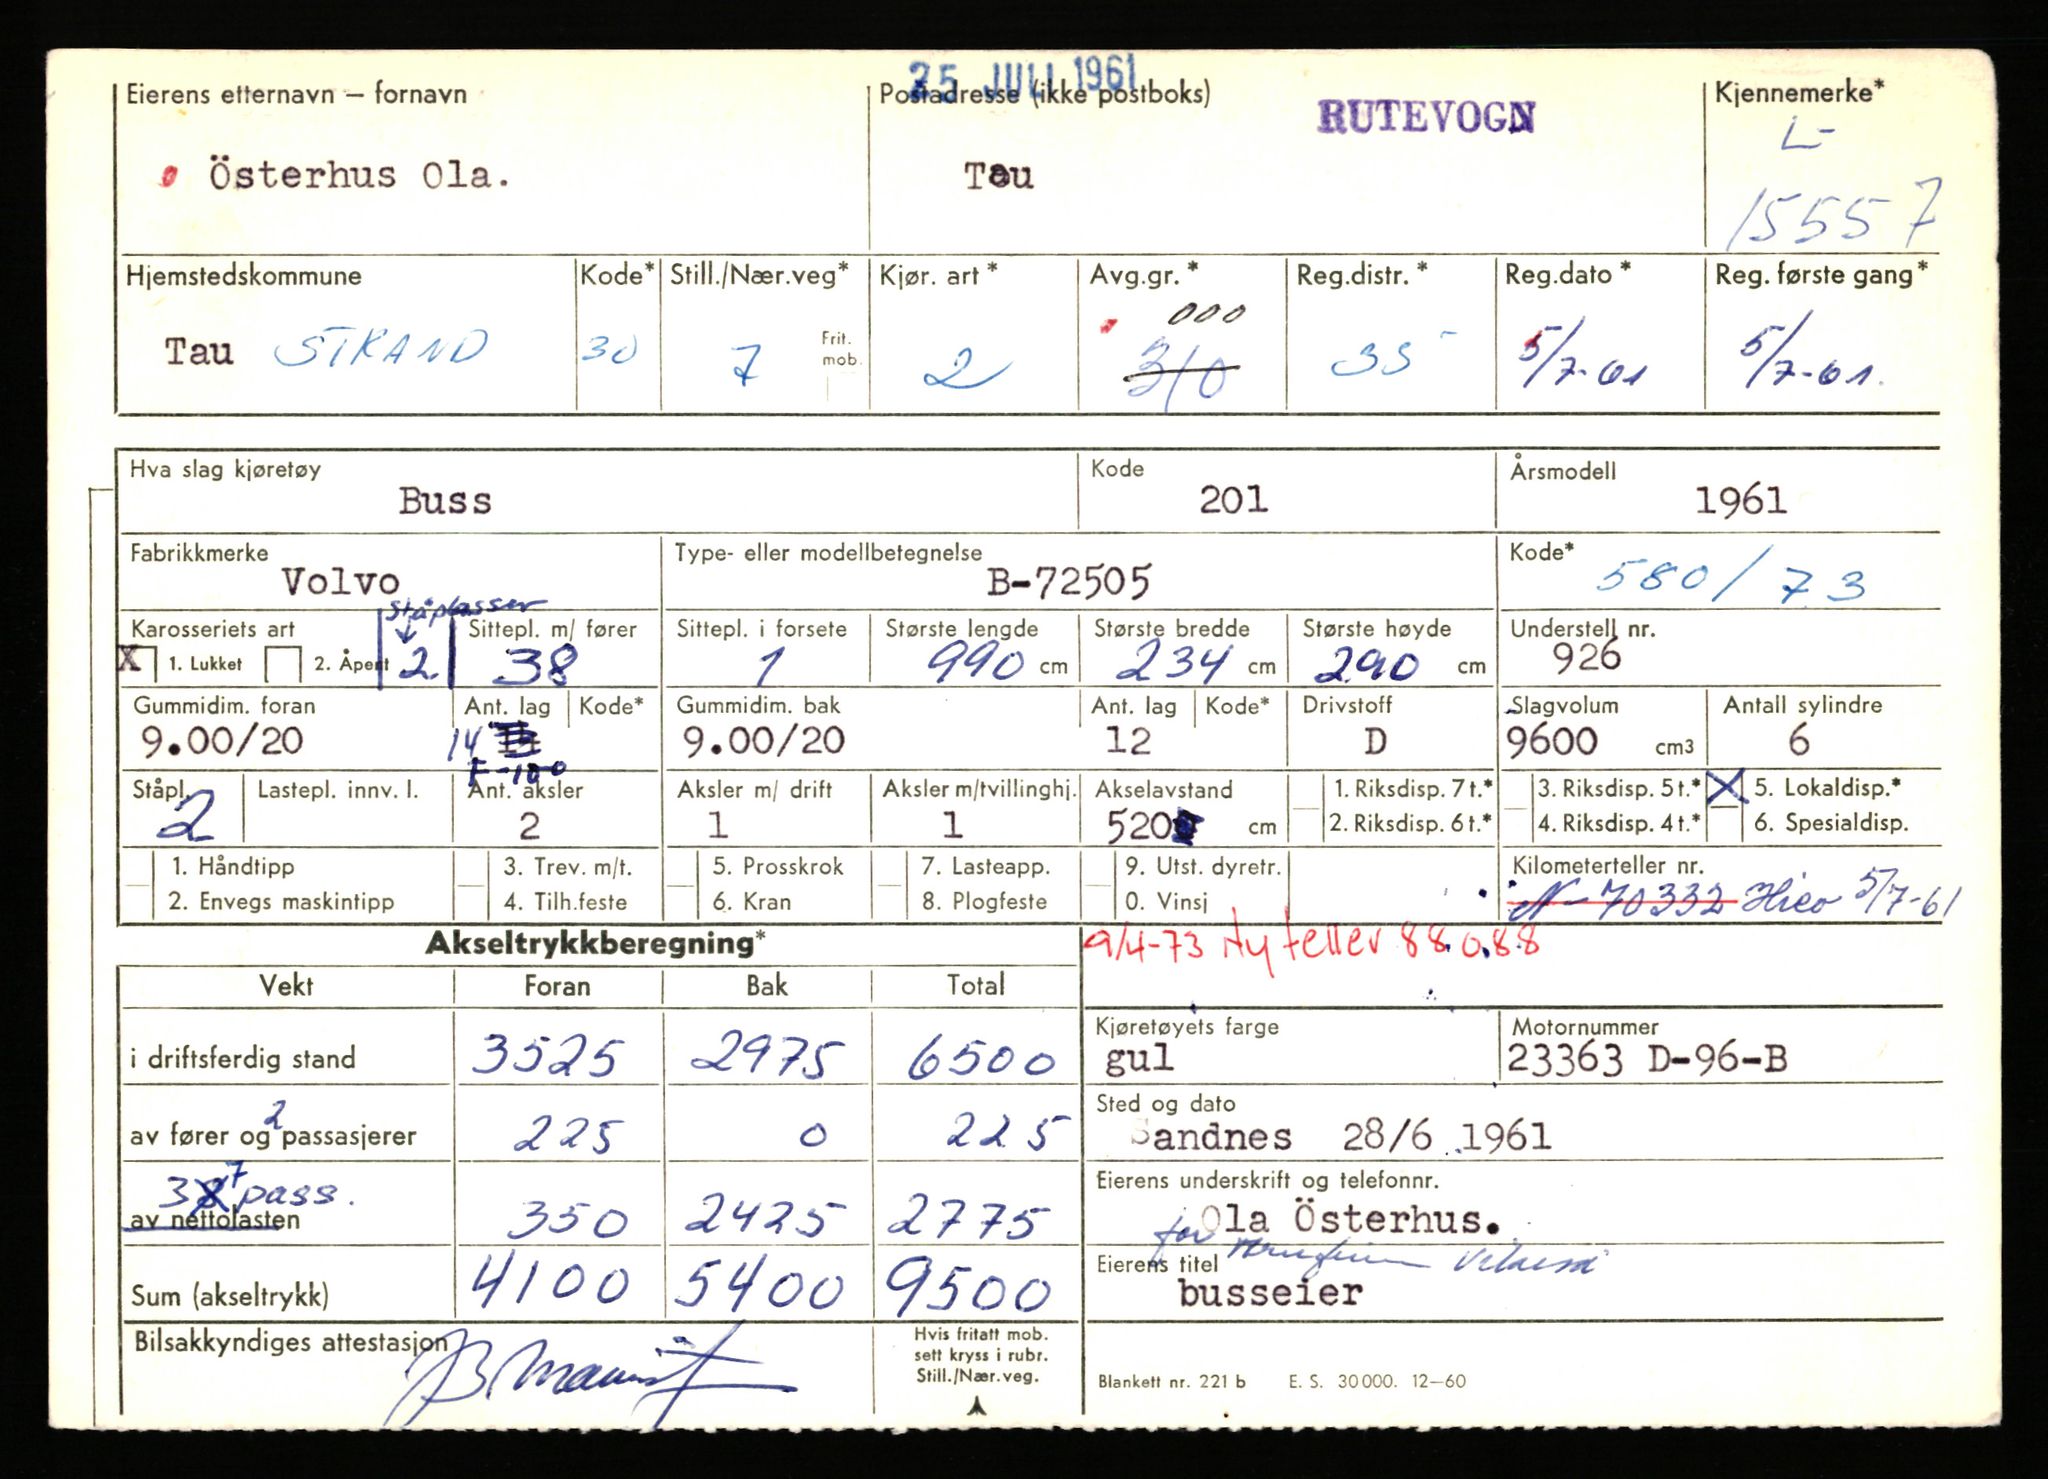 25 JULI 1961
Eierens etternavn — fornavn
Postadresse (ikke postboks)
RUTEVOGN
Kjennemerke*
L-
Österhus Ola.
Tau
15557
Hjemstedskommune
Kode*
Still./Nær.veg*
Kjør. art *
Avg.gr. *
Reg.distr. *
Reg.dato *
Reg. første gang*
Tau STRAND
30
7
Frit. mob.
2
000
310
35
5/7-61
5/7-61.
Hva slag kjøretøy
Buss
Kode
201
Årsmodell
1961
Fabrikkmerke
Volvo
Type- eller modellbetegnelse
B-72505
Kode*
580/73
Ståplasser
Karosseriets art
X 1. Lukket
2. Åpent
2
Sittepl. m/ fører
38
Sittepl. i forsete
1
Største lengde
990 cm
Største bredde
234 cm
Største høyde
290 cm
Understell nr.
926
Gummidim. foran
9.00/20
Ant. lag
14
F-100
Kode*
Gummidim. bak
9.00/20
Ant. lag
12
Kode*
Drivstoff
D
Slagvolum
9600 cm3
Antall sylindre
6
Ståpl.
2
Lastepl. innv. l.
Ant. aksler
2
Aksler m/ drift
1
Aksler m/tvillinghj.
1
Akselavstand
520 cm
1. Riksdisp. 7 t.*
2. Riksdisp. 6 t.*
3. Riksdisp. 5 t.*
4. Riksdisp. 4 t.*
X 5. Lokaldisp.*
6. Spesialdisp.
1. Håndtipp
2. Envegs maskintipp
3. Trev. m/t.
4. Tilh.feste
5. Prosskrok
6. Kran
7. Lasteapp.
8. Plogfeste
9. Utst. dyretr.
0. Vinsj
Kilometerteller nr.
N-70332 Hico 5/7-61
9/4-73 Ny teller 88088
Akseltrykkberegning*
Vekt
Foran
Bak
Total
i driftsferdig stand
3525
2975
6500
av fører og 2 passasjerer
225
0
225
37 pass.
av nettolasten
350
2425
2775
Sum (akseltrykk)
4100
5400
9500
Kjøretøyets farge
gul
Motornummer
23363 D-96-B
Sted og dato
Sandnes 28/6 1961
Eierens underskrift og telefonnr.
Ola Österhus.
for
Eierens titel
busseier
Bilsakkyndiges attestasjon
Hvis fritatt mob.
sett kryss i rubr.
Still./Nær.veg.
Blankett nr. 221 b E. S. 30000. 12—60